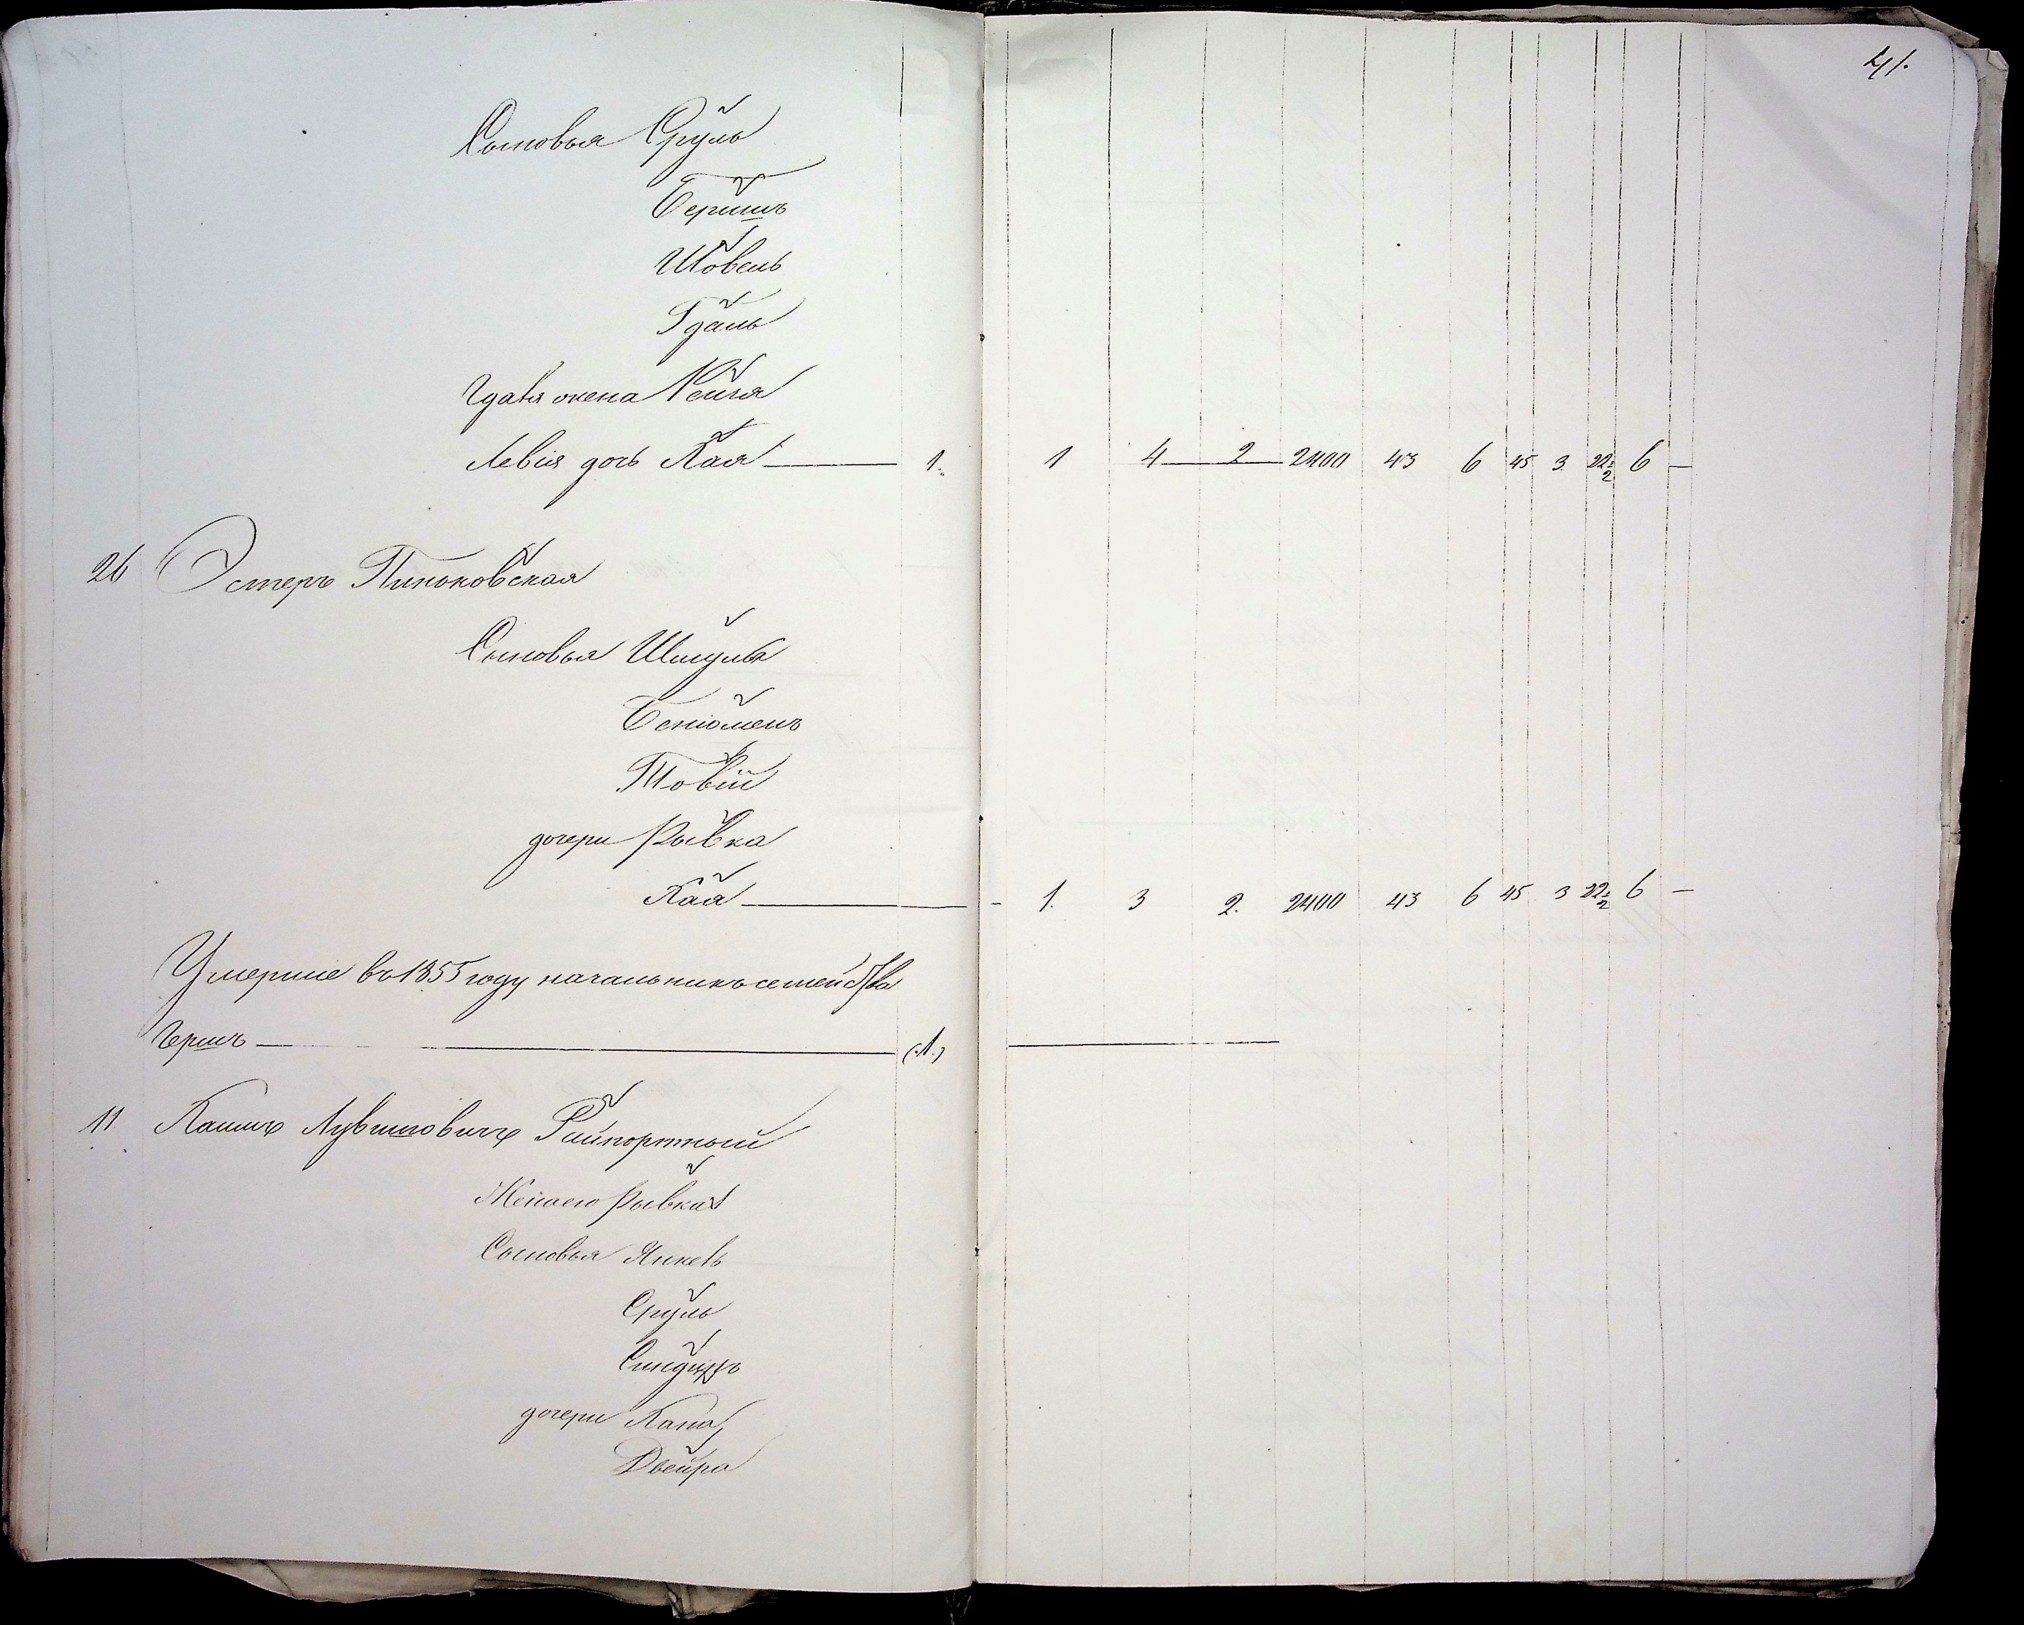 41.
Сыновья Сруль
Бершъ
Шовель
Гдаль
Гдаля жена Рейзя
Левія дочь Хая 1. 1 4 2 2400 43 6 45 3. 22½ 6 —
26 Эстеръ Пиньковская
Сыновья Шмуль
Бенюменъ
Товій
дочери Рывка
Хая 1. 3 2. 2400 43 6 45 3 22½ 6 —
Умершіе въ 1855 году начальникъ семейства
Гершъ (1.)
11. Хаимъ Лувишовичъ Райпортный
Жена его Рывка
Сыновья Янкель
Сруль
дочери Хана
Двейра